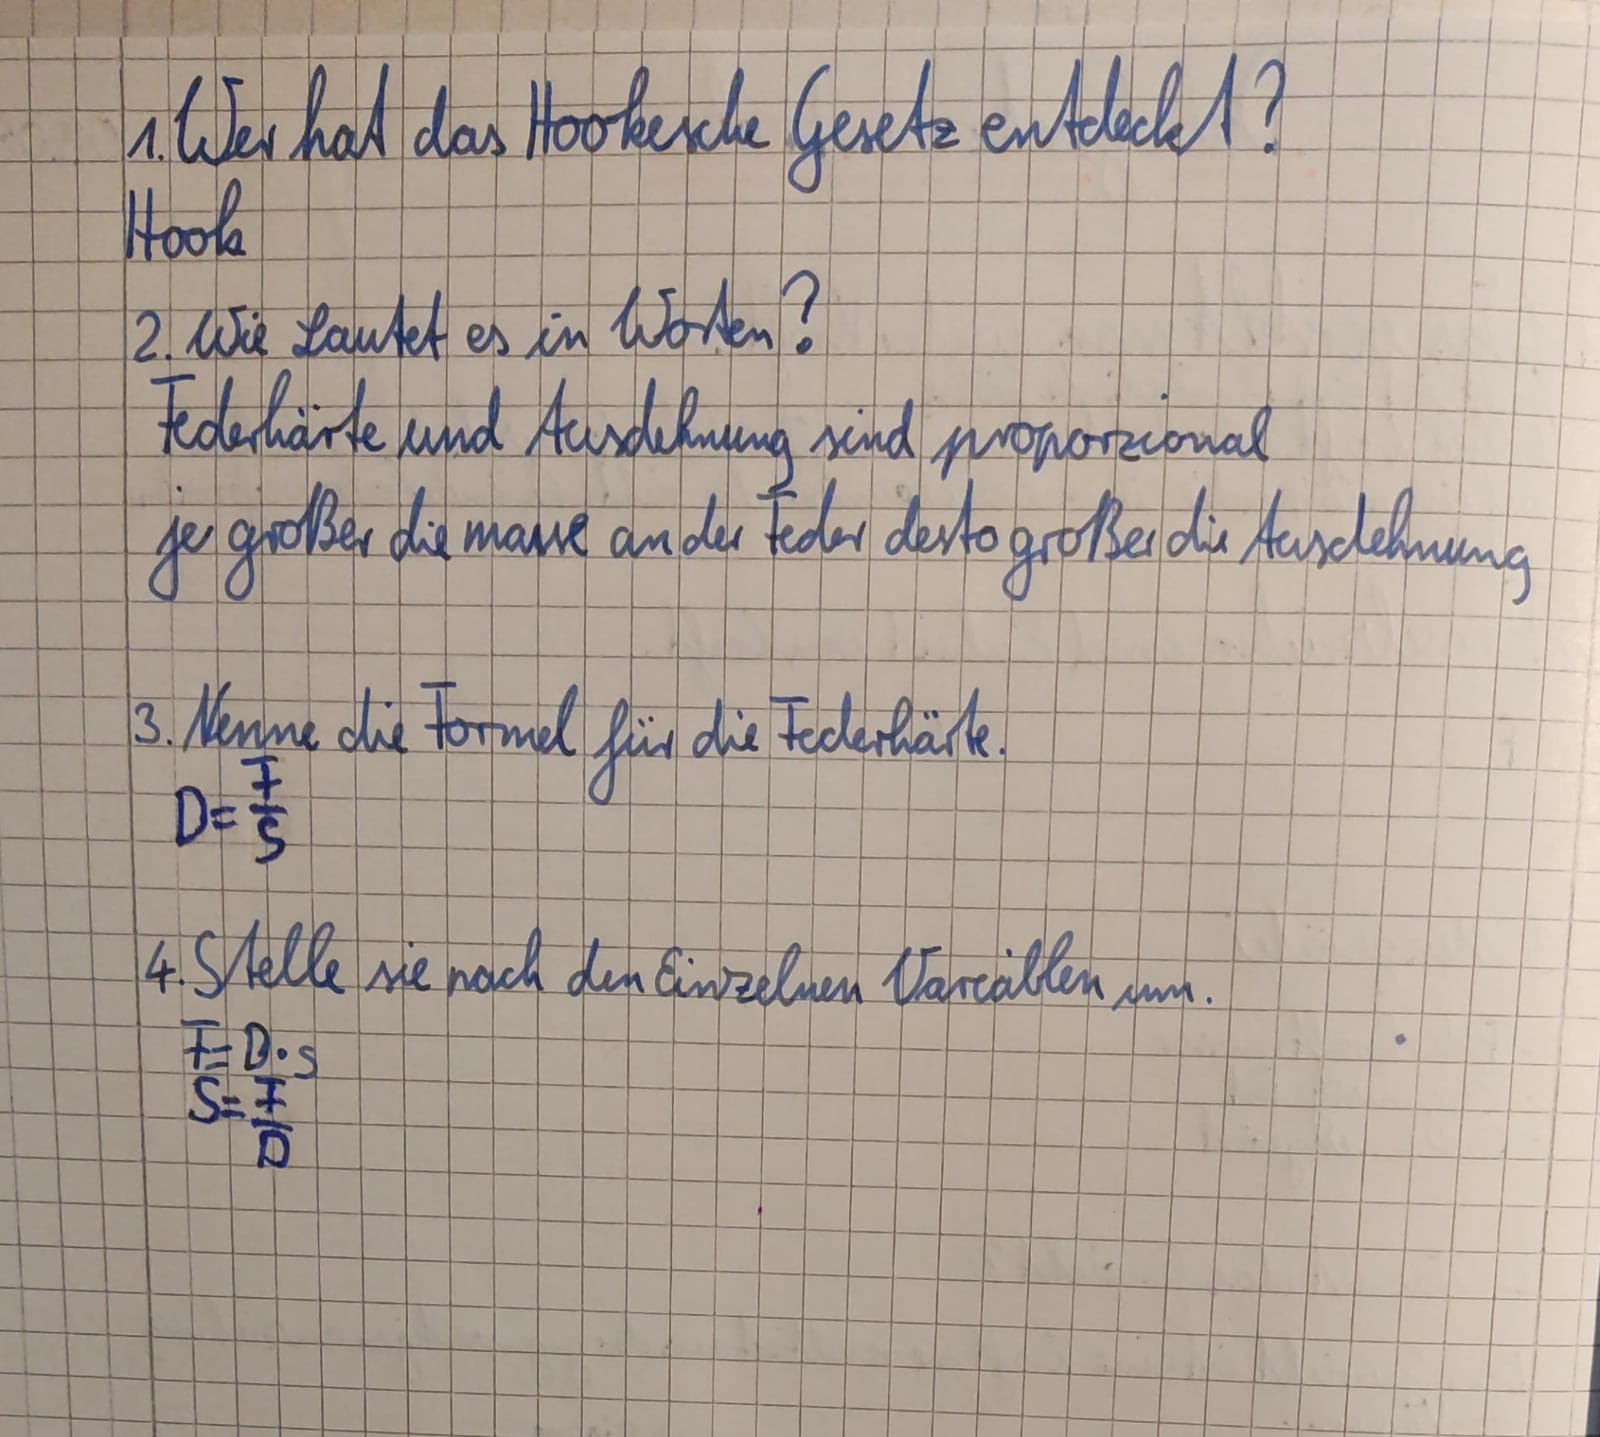 1. Wer hat das Hookesche Gesetz entdeckt?
Hook
2. Wie Lautet es in Worten?
Federhärte und Ausdehnung sind proporzional
je großer die masse an der Feder desto großer die Ausdehnung
3. Nenne die Formel für die Federhärte.
D = F/S
4. Stelle sie nach den Einzelnen Variablen um.
F = D · s
S = F/D